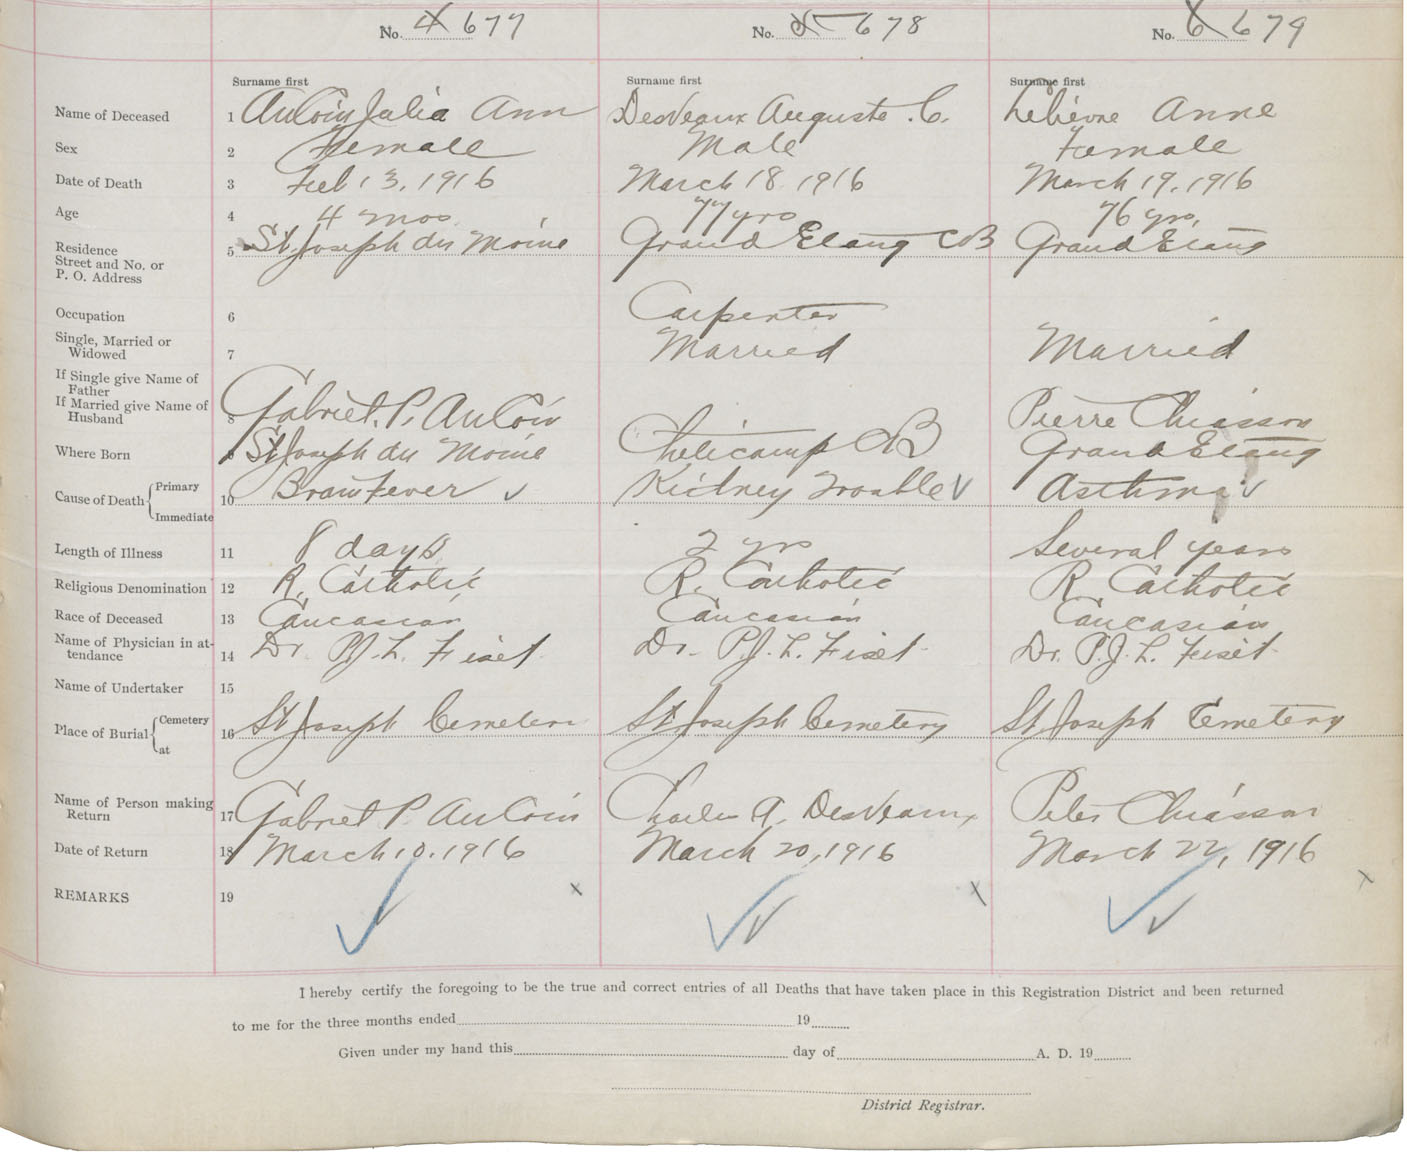 No. 4 677 No. 5 678 No. 6 679
Surname first Surname first Surname first
Name of Deceased 1 AuCoin Julia Ann DesVeaux Auguste C. Lelievre Anne
Sex 2 Female Male Female
Date of Death 3 Feb 13, 1916 March 18 1916 March 19, 1916
Age 4 4 mos 77 yrs 76 yrs,
Residence
Street and No. or
P. O. Address 5 St. Joseph du Moine Grand Etang CB Grand Etang
Occupation 6 Carpenter
Single, Married or
Widowed 7 Married Married
If Single give Name of
Father
If Married give Name of
Husband 8 Gabriel. P. AuCoin Pierre Chiasson
Where Born 9 St Joseph du Moine Cheticamp CB Grand Etang
Cause of Death { Primary
Immediate 10 Brain Fever ✓ Kidney Trouble ✓ Asthma ✓
Length of Illness 11 8 days 2 yrs Several years
Religious Denomination 12 R. Catholic R. Catholic R. Catholic
Race of Deceased 13 Caucasian Caucasian Caucasian
Name of Physician in at-
tendance 14 Dr. P.J.L. Fiset Dr. P.J.L. Fiset Dr. P.J.L. Fiset
Name of Undertaker 15
Place of Burial { Cemetery
at 16 St Joseph Cemetery St Joseph Cemetery St Joseph Cemetery
Name of Person making
Return 17 Gabriel P. AuCoin Charles A. DesVeaux Peter Chiasson
Date of Return 18 March 10, 1916 March 20, 1916 March 22, 1916
REMARKS 19
I hereby certify the foregoing to be the true and correct entries of all Deaths that have taken place in this Registration District and been returned
to me for the three months ended 19
Given under my hand this day of A. D. 19
District Registrar.